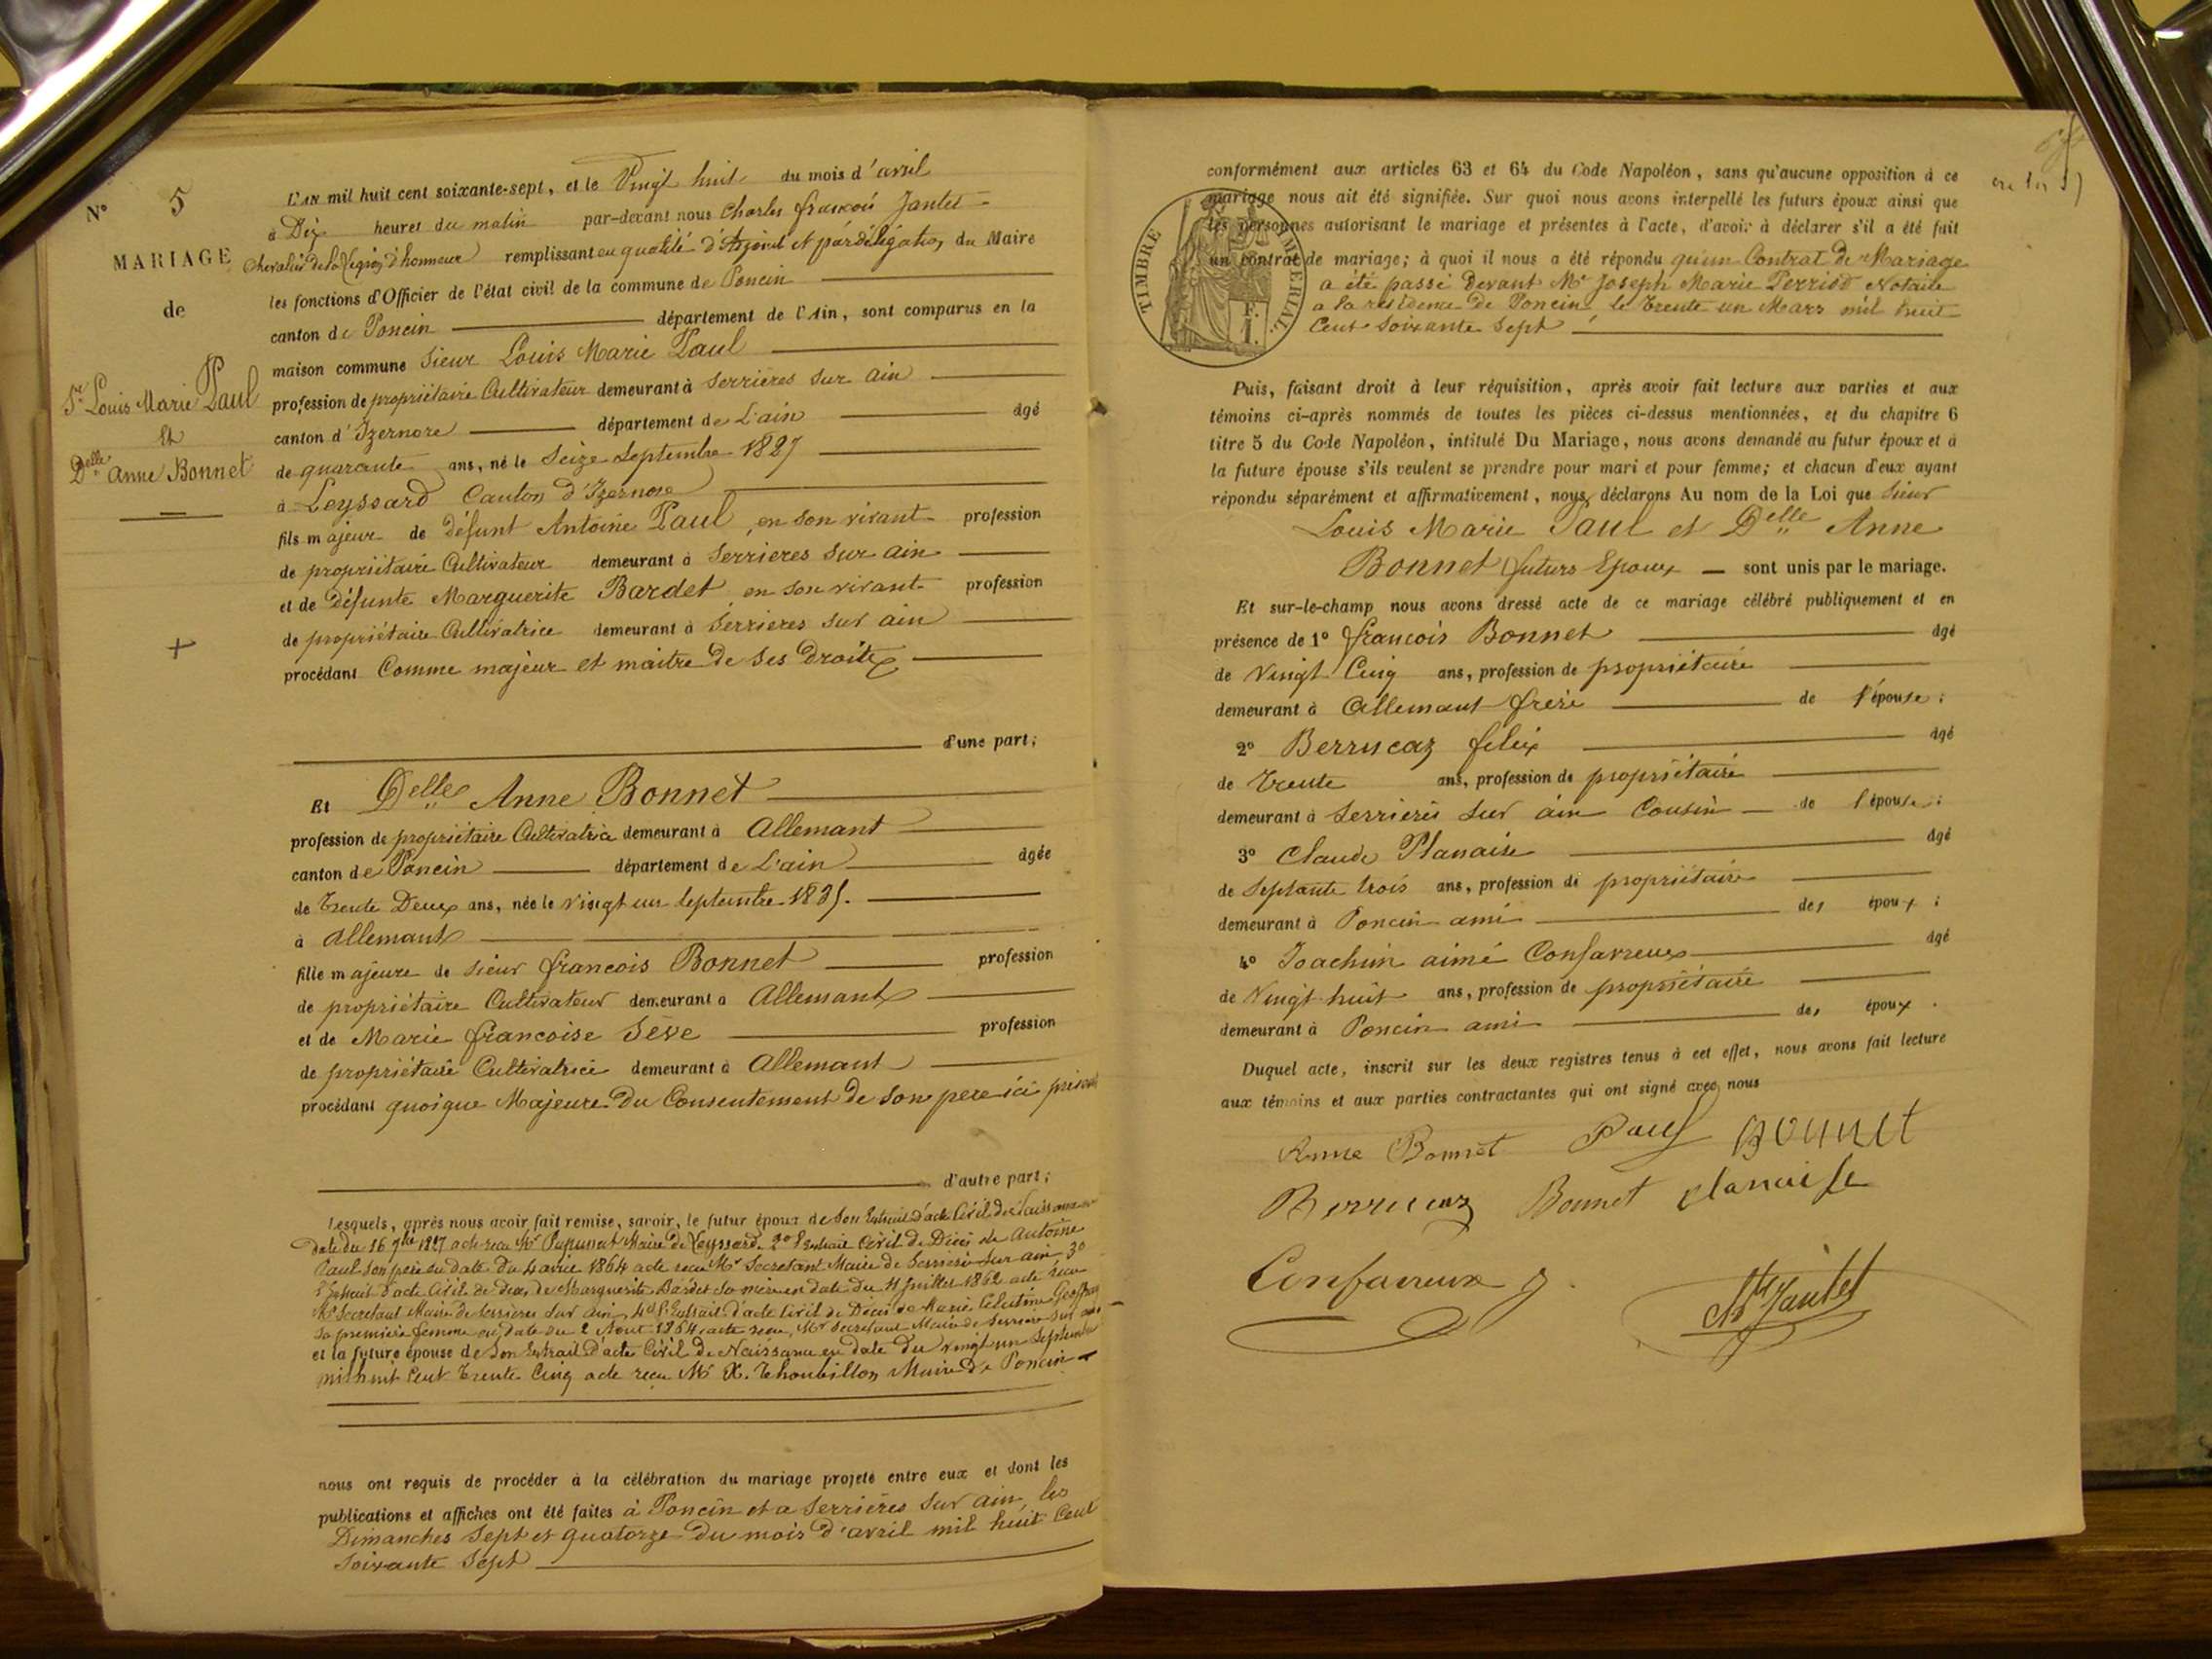 N° 5
MARIAGE
de
Sr Louis Marie Paul
Et
Delle Anne Bonnet
L'AN mil huit cent soixante-sept, et le Vingt huit du mois d'avril
à Dix heures du matin par-devant nous Charles françois Jantet
chevalier de la Légion d'honneur remplissant en qualité d'Adjoint et par délégation du Maire
les fonctions d'Officier de l'état civil de la commune de Poncin
canton de Poncin département de l'Ain, sont comparus en la
maison commune Sieur Louis Marie Paul
profession de propriétaire Cultivateur demeurant à Serrières sur ain
canton d'Izernore département de L'ain âgé
de quarante ans, né le Seize Septembre 1827
à Leyssard Canton d'Izernore
fils majeur de défunt Antoine Paul en son vivant profession
de propriétaire Cultivateur demeurant à Serrieres sur ain
et de défunte Marguerite Bardet en son vivant profession
de propriétaire Cultivatrice demeurant à Serrieres sur ain
procédant Comme majeur et maitre de ses droits
d'une part;
Et Delle Anne Bonnet
profession de propriétaire Cultivatrice demeurant à Allemant
canton de Poncin département de L'ain âgée
de Trente Deux ans, née le vingt un Septembre 1835.
à Allemant
fille majeure de Sieur francois Bonnet profession
de propriétaire Cultivateur demeurant à Allemant
et de Marie francoise Sève profession
de propriétaire Cultivatrice demeurant à Allemant
procédant quoique Majeure du Consentement de son pere ici
d'autre part;
Lesquels, après nous avoir fait remise, savoir, le futur époux de Son Extrait d'acte Civil de Naissance
date du 16 7bre 1827 acte reçu Mr Maire de Leyssard. 2º l'Extrait Civil de Décès de Antoine
Paul son pere en date du 4 1864 acte reçu Mr Secretant Maire de Serrieres sur ain 3º
l'Extrait d'acte Civil de de Marguerite Bardet sa mere en date du 11 Juillet 1862 acte reçu
Mr Secretant Maire de Serrieres sur ain, 4º l'Extrait d'acte Civil de Décès de Marie Celestine
sa première femme en date du 2 Aout 1864 acte reçu Mr Secretant Maire de Serrieres sur ain
et la future épouse de Son Extrait d'acte Civil de Naissance en date du vingt un Septembre
mil huit Cent Trente Cinq acte reçu Mr X. Thoubillon Maire de Poncin
nous ont requis de procéder à la célébration du mariage projeté entre eux et dont les
publications et affiches ont été faites à Poncin et a Serrières sur ain, les
Dimanches Sept et quatorze du mois d'avril mil huit Cent
Soixante Sept
TIMBRE
F.
1.
conformément aux articles 63 et 64 du Code Napoléon, sans qu'aucune opposition à ce
mariage nous ait été signifiée. Sur quoi nous avons interpellé les futurs époux ainsi que
les personnes autorisant le mariage et présentes à l'acte, d'avoir à déclarer s'il a été fait
un contrat de mariage; à quoi il nous a été répondu qu'un Contrat de Mariage
a été passé devant Me Joseph Marie Perriod Notaire
a la residence de Poncin, le Trente un Mars mil huit
Cent Soixante Sept
Puis, faisant droit à leur réquisition, après avoir fait lecture aux parties et aux
témoins ci-après nommés de toutes les pièces ci-dessus mentionnées, et du chapitre 6
titre 5 du Code Napoléon, intitulé Du Mariage, nous avons demandé au futur époux et à
la future épouse s'ils veulent se prendre pour mari et pour femme; et chacun d'eux ayant
répondu séparément et affirmativement, nous déclarons Au nom de la Loi que Sieur
Louis Marie Paul et Delle Anne
Bonnet futurs Epoux sont unis par le mariage.
Et sur-le-champ nous avons dressé acte de ce mariage célébré publiquement et en
présence de 1° francois Bonnet âgé
de Vingt Cinq ans, profession de propriétaire
demeurant à Allemant frère de l'épouse;
2° Berrucaz felix âgé
de Trente ans, profession de propriétaire
demeurant à Serrières sur ain Cousin de l'épouse;
3° Claude Planaise âgé
de Septante trois ans, profession de propriétaire
demeurant à Poncin ami des époux;
4° Joachim aimé Confavreux âgé
de Vingt huit ans, profession de propriétaire
demeurant à Poncin ami des époux.
Duquel acte, inscrit sur les deux registres tenus à cet effet, nous avons fait lecture
aux témoins et aux parties contractantes qui ont signé avec nous
Anne Bonnet Paul Bonnet
Berrucaz Bonnet planaise
Confavreux J. Jantet